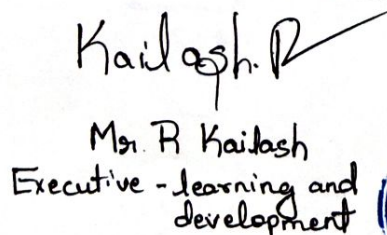 Kailash. R
Mr. R Kailash
Executive - learning and
development